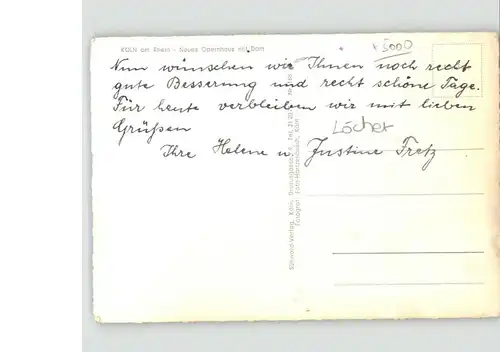 KÖLN am Rhein - Neues Opernhaus mit Dom
k 5000
Nun wünschen wir Ihnen noch recht
gute Besserung und recht schöne Tage.
Für heute verbleiben wir mit lieben
Grüßen
Löcher
Ihre Helene u. Justine Fretz
Verlag, Köln
Fotograf: Köln